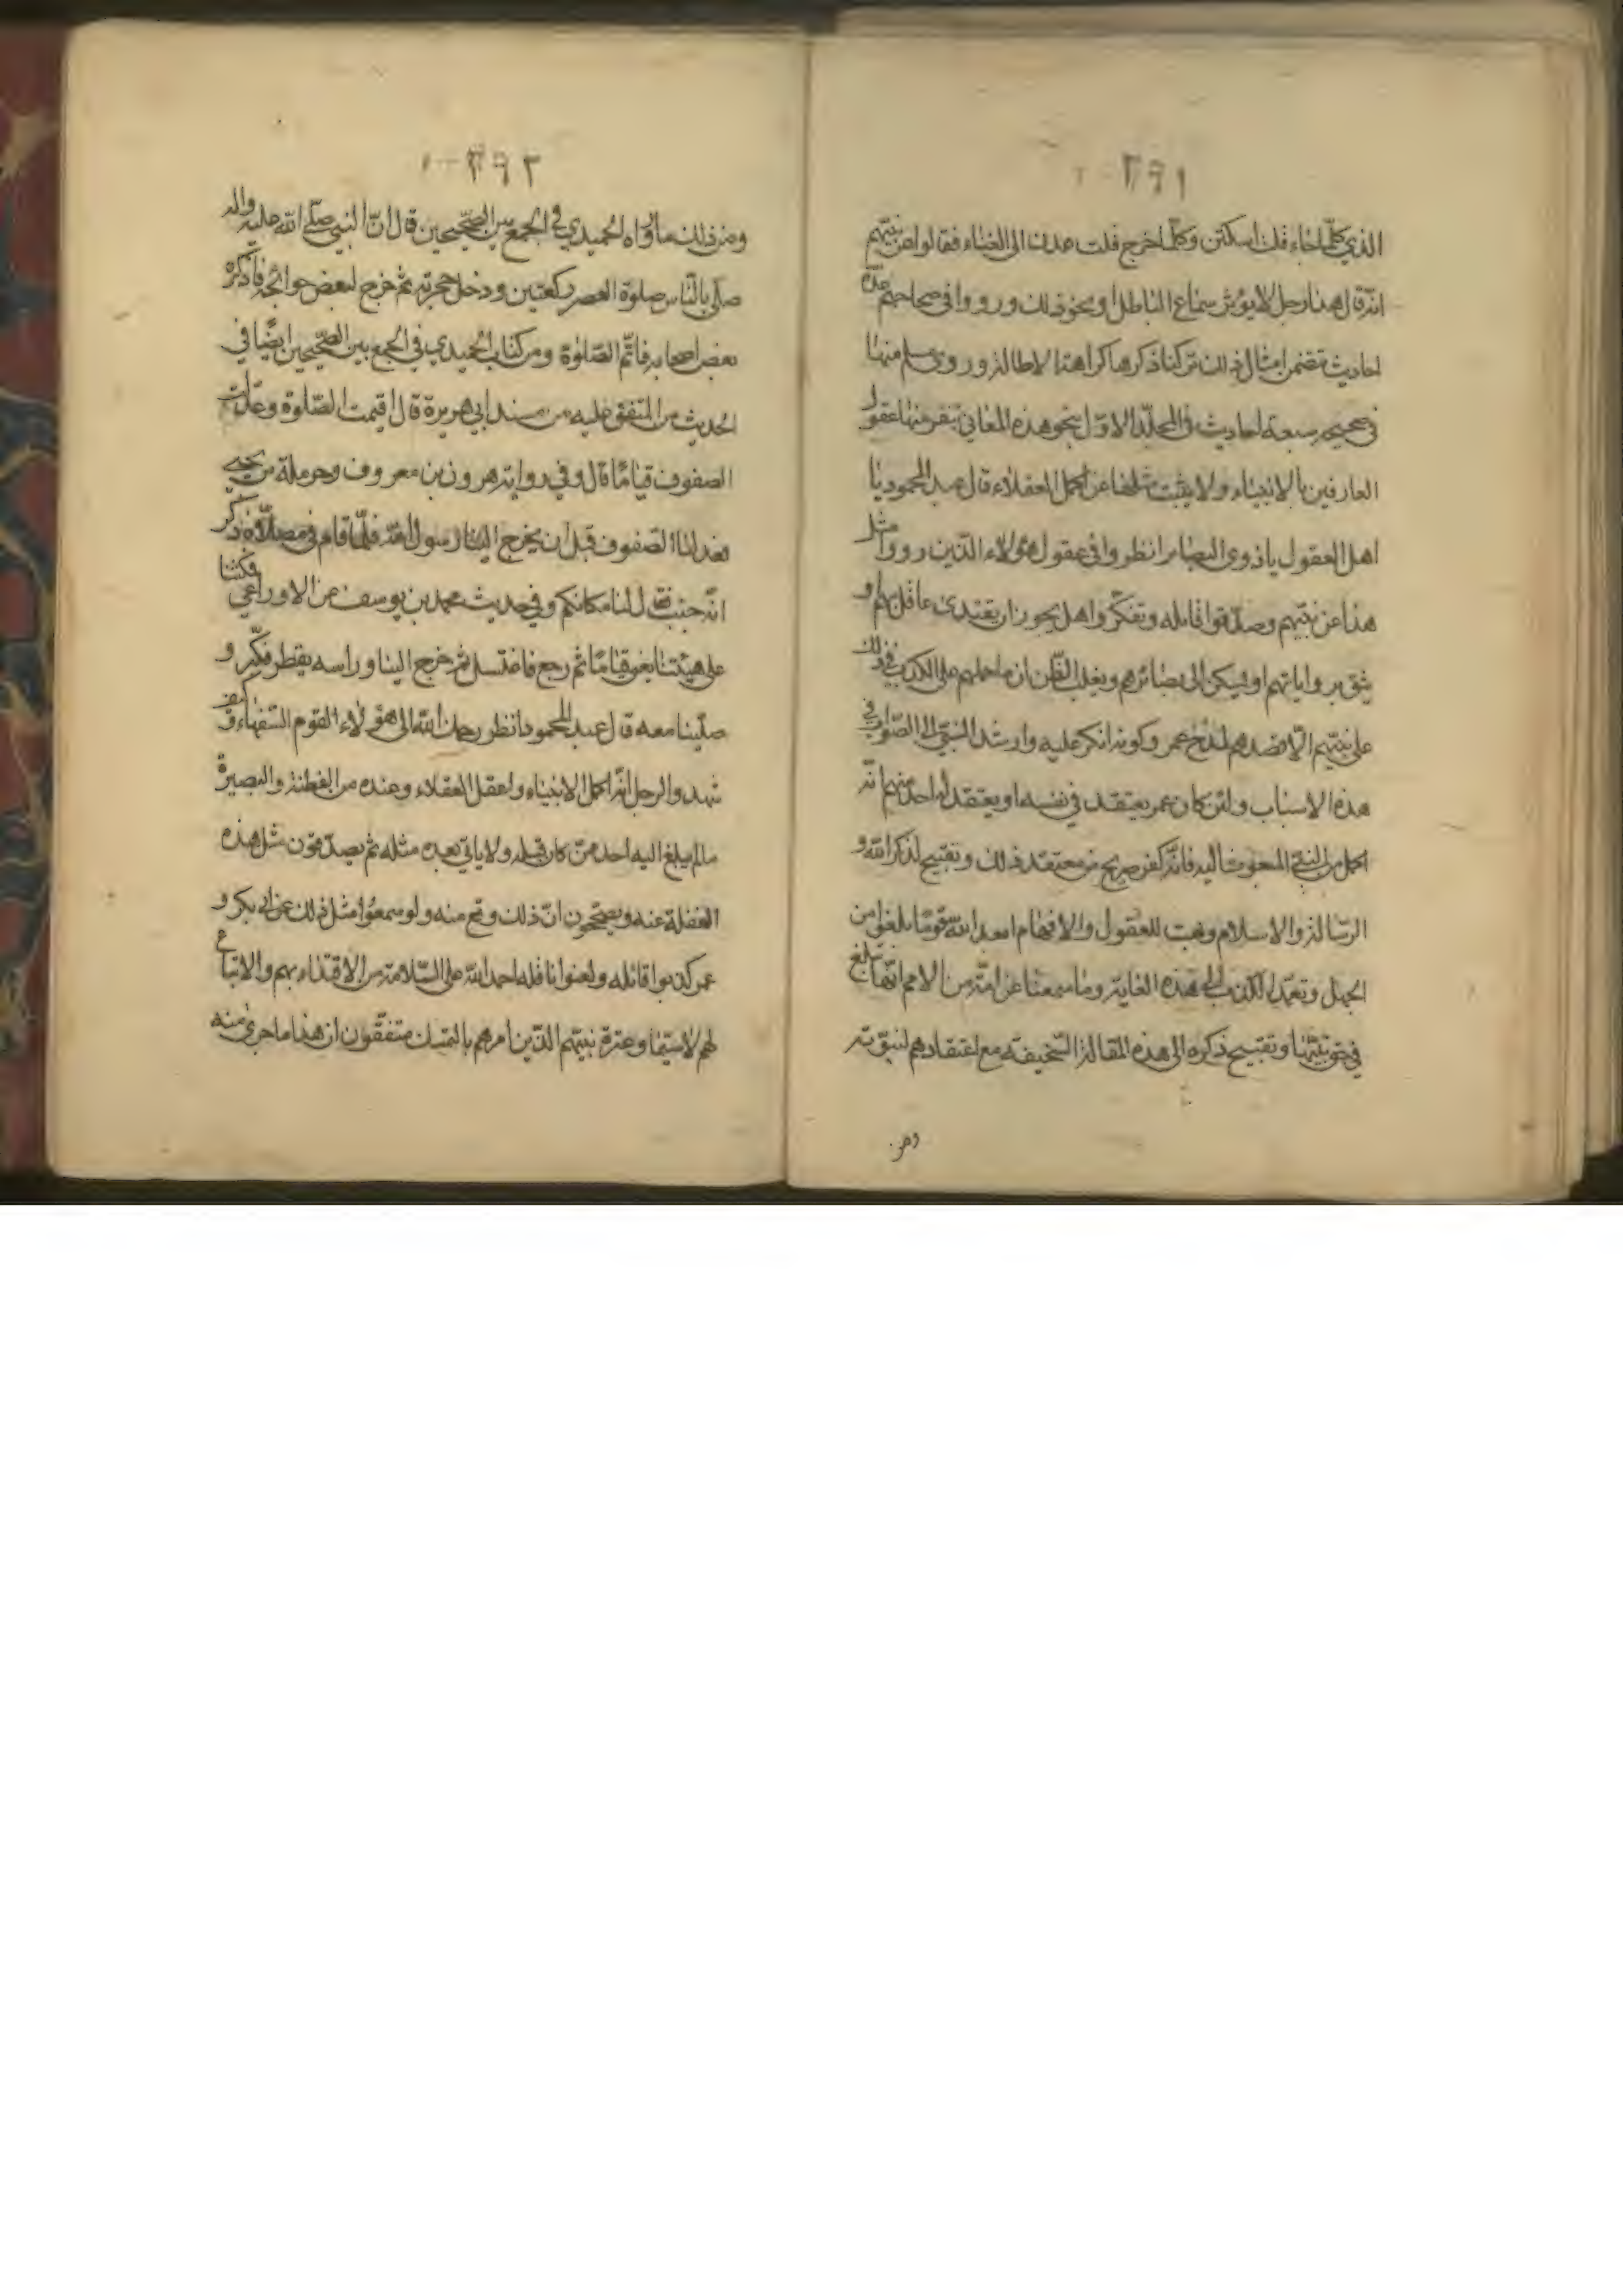 ١٩٢
الذي كلما جاء قلت اسكتن وكلما خرج قلت عدن الى الغناء فقالوا عن نبيهم
انه قال هذا رجل لا يؤثر سماع الباطل ونحو ذلك ورووا في صحاحهم عدة
احاديث تتضمن امثال ذلك تركنا ذكرها كراهة الاطالة وروى مسلم منها
في صحيحه سبعة احاديث في المجلد الاول بنحو هذه المعاني تنفر منها عقول
العارفين بالانبياء ولا يثبت مثلها عن اكمل العقلاء قال عبد المحمود يا
اهل العقول يا ذوي البصائر انظروا في عقول هؤلاء الذين رووا مثل
هذا عن نبيهم وصدقوا قائله وتفكروا هل يجوز ان يقتدى عاقل بهم او
يثق برواياتهم او يسكن الى بصائرهم ويغلب الظن ان ما حملهم على الكذب في ذلك
على نبيهم الا قصدهم لمدح عمر وكونه انكر عليه وارشد النبي الى الصواب في
هذه الاسباب ولئن كان عمر يعتقد في نفسه او يعتقد له احد منهم انه
اكمل من النبي المبعوث اليه فانه كفر صريح من معتقد ذلك وتقبيح لذكر الله و
الرسالة والاسلام وعيب للعقول والافهام ابعد الله قوما بلغوا من
الجهل وتعمد الكذب الى هذه الغاية وما سمعنا عن امة من الامم انها تبلغ
في نبيها وتقبيح ذكره الى هذه المقالة السخيفة مع اعتقادهم لنبوته
ومن
ومن ذلك ما رواه الحميدي في الجمع بين الصحيحين قال ان النبي صلى الله عليه واله
صلى بالناس صلوة العصر ركعتين ودخل حجرته ثم خرج لبعض حوائجه فاذكره
بعض اصحابه فاتم الصلوة ومن كتاب الحميدي في الجمع بين الصحيحين ايضا في
الحديث من المتفق عليه من مسند ابي هريرة قال اقيمت الصلوة وعدلت
الصفوف قياما قال وفي رواية هرون بن معروف وحرملة بن يحيى
فعدلنا الصفوف قبل ان يخرج الينا رسول الله فلما قام في مصلاه ذكر
انه جنب فقال لنا مكانكم وفي حديث محمد بن يوسف عن الاوزاعي فمكثنا
على هيئتنا يعني قياما ثم رجع فاغتسل ثم خرج الينا وراسه يقطر فكبر و
صلينا معه قال عبد المحمود انظر رحمك الله الى هؤلاء القوم السفهاء كيف
شهدوا لرجل انه اكمل الانبياء واعقل العقلاء وعنده من الفطنة والبصيرة
ما لم يبلغ اليه احد ممن كان قبله ولا ياتي بعده مثله ثم يصدقون مثل هذه
الغفلة عنه ويصححون ان ذلك وقع منه ولو سمعوا مثل ذلك عن ابي بكر و
عمر كذبوا قائله ولعنوا ناقله احمد الله على السلامة من الاقتداء بهم والاتباع
لهم لا سيما وعترة نبيهم الذين امرهم بالتمسك متفقون ان هذا ما جرى منه